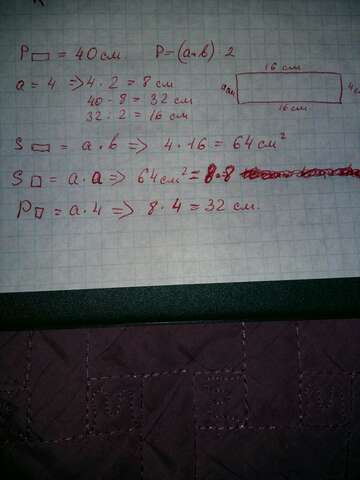 P▭ = 40 см. P = (a+b) · 2
16 см
a = 4 => 4 · 2 = 8 см
40 - 8 = 32 см
32 : 2 = 16 см
16 см
S▭ = a · b => 4 · 16 = 64 см²
S□ = a · a => 64 см² = 8 · 8
P□ = a · 4 => 8 · 4 = 32 см.